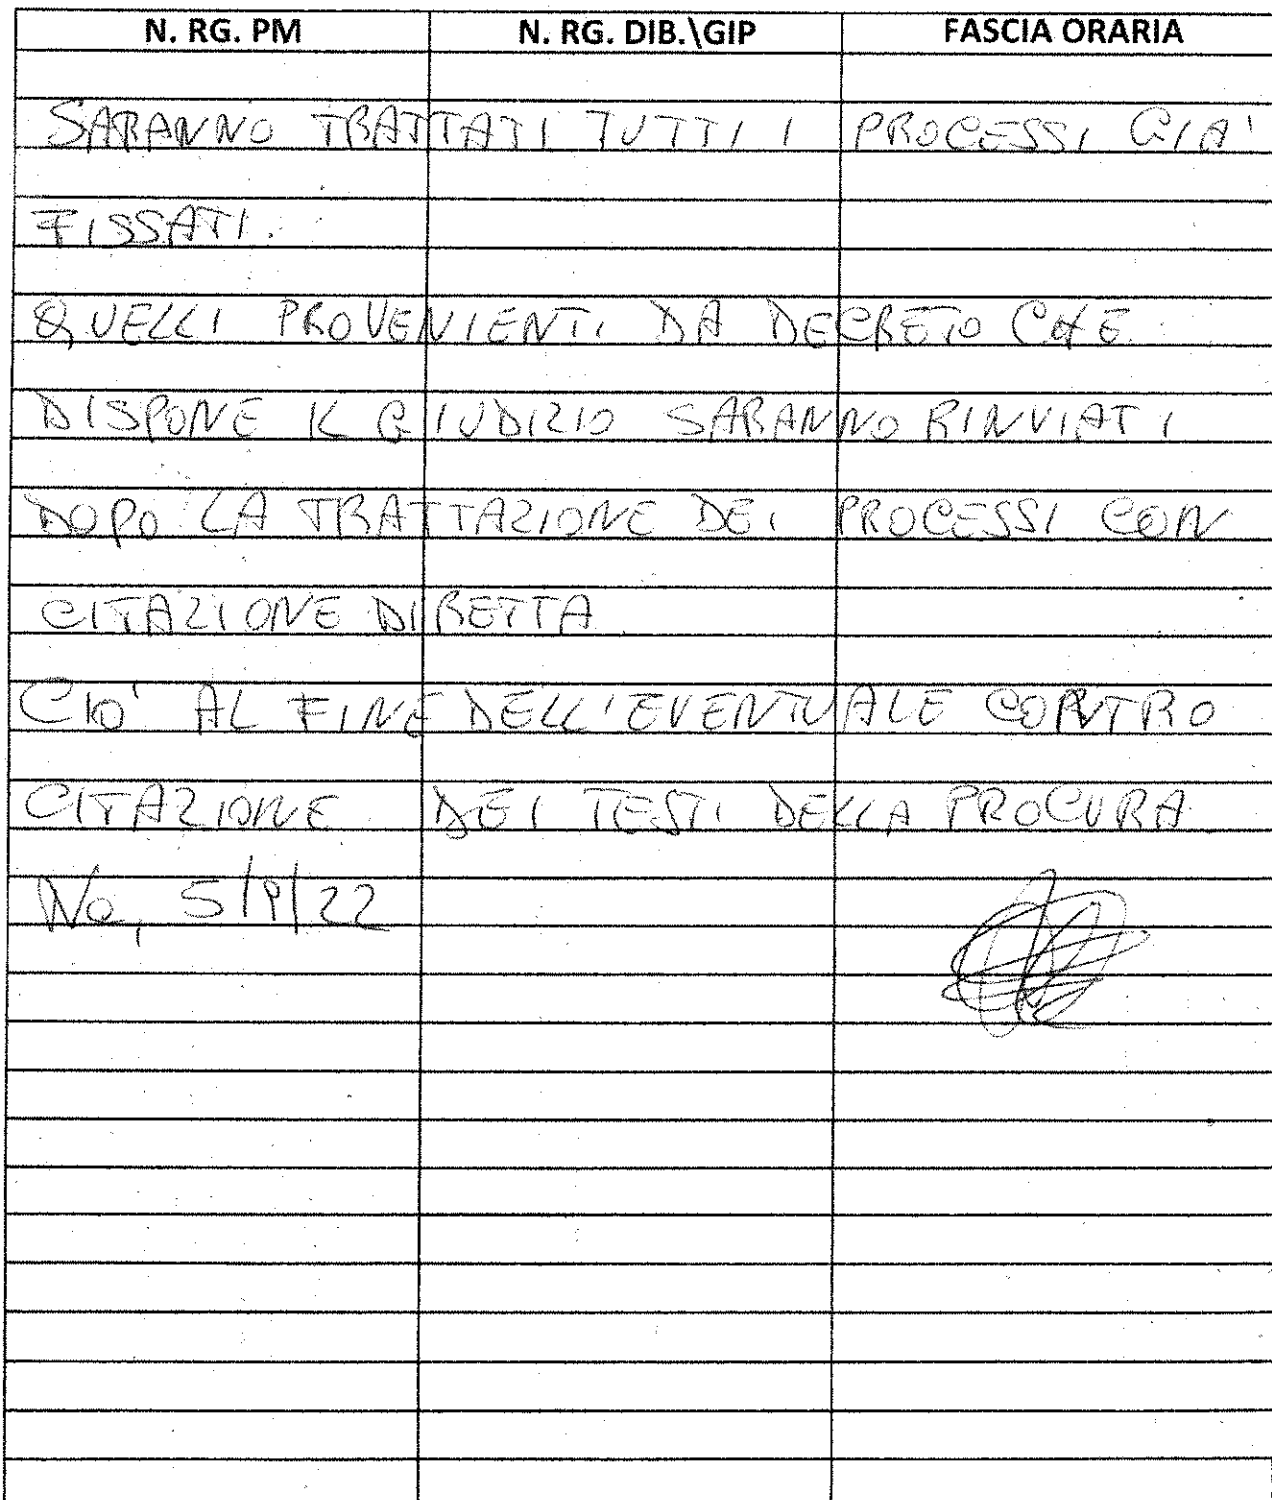 N. RG. PM N. RG. DIB.\GIP FASCIA ORARIA
SARANNO TRATTATI TUTTI I PROCESSI GIA'
FISSATI.
QUELLI PROVENIENTI DA DECRETO CHE
DISPONE IL GIUDIZIO SARANNO RINVIATI
DOPO LA TRATTAZIONE DEI PROCESSI CON
CITAZIONE DIRETTA
CIO' AL FINE DELL'EVENTUALE CONTRO
CITAZIONE DEI TESTI DELLA PROCURA
22